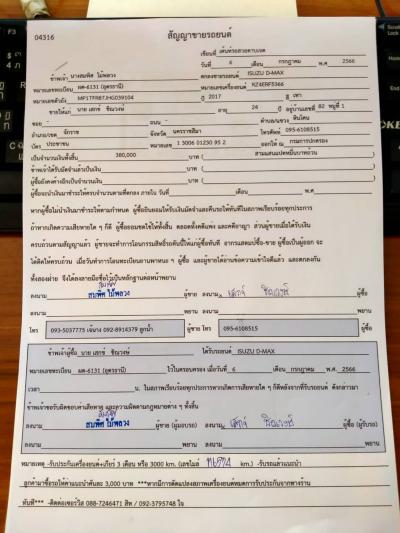 04316
สัญญาขายรถยนต์
เขียนที่ เต้นท์รถสวยตาบเจต
วันที่ 6 เดือน กรกฎาคม พ.ศ. 2566
ข้าพเจ้า นางสมพิศ ไม้พลวง ตกลงขายรถยนต์ ISUZU D-MAX
หมายเลขทะเบียน ผศ-6131 (อุดรธานี) หมายเลขเครื่องยนต์ KZ4ERF5366
หมายเลขตัวถัง MP1TFR87JHG039104 ปี 2017 สี เทา
ขายให้แก่ นาย เสกข์ ชิณวงษ์ อายุ 24 ปี อยู่บ้านเลขที่ 82 หมู่ที่ 1
ซอย - ถนน - ตำบล/แขวง หินโคน
อำเภอ/เขต จักราช จังหวัด นครราชสีมา โทรศัพท์ 095-6108515
บัตร ประชาชน หมายเลข 1 3006 01230 95 2 ออกให้ ณ กรมการปกครอง
เป็นจำนวนเงินทั้งสิ้น 380,000 บาท ( สามแสนแปดหมื่นบาทถ้วน )
ข้าพเจ้าได้รับมัดจำแล้วเป็นเงิน บาท ( )
ผู้ซื้อยังคงค้างอีกเป็นจำนวนเงิน บาท ( )
ผู้ซื้อจะนำเงินมาชำระให้ครบจำนวนตามที่ตกลง ภายใน วันที่ เดือน พ.ศ.
หากผู้ซื้อไม่นำเงินมาชำระให้ตามกำหนด ผู้ซื้อยินยอมให้ริบเงินมัดจำและคืนรถให้ทันทีในสภาพเรียบร้อยทุกประการ
ถ้าหากเกิดความเสียหายใด ๆ ก็ดี ผู้ซื้อยอมชดใช้ให้ทั้งสิ้น ตลอดทั้งคดีแพ่ง และคดีอาญา ส่วนผู้ขายเมื่อได้รับเงิน
ครบถ้วนตามสัญญาแล้ว ผู้ขายจะทำการโอนกรรมสิทธิ์รถคันนี้ให้แก่ผู้ซื้อทันที
ได้คิดให้ครบถ้วน เมื่อวันทำการโอนทะเบียนยานพาหนะ ฯ ผู้ซื้อ และผู้ขายได้อ่านข้อความเข้าใจดีแล้ว และตกลงกัน
ทั้งสองฝ่าย จึงได้ลงลายมือชื่อไว้เป็นหลักฐานต่อหน้าพยาน
สมพิศ
ลงนาม สมพิศ ไม้พลวง ผู้ขาย ลงนาม เสกข์ ชิณวงษ์ ผู้ซื้อ
ลงนาม พยาน ลงนาม พยาน
โทร 093-5037775 092-8914379 ลูกน้ำ ผู้ขาย โทร 095-6108515 ผู้ซื้อ
ข้าพเจ้าผู้ซื้อ นาย เสกข์ ชิณวงษ์ ได้รับรถยนต์ ISUZU D-MAX
หมายเลขทะเบียน ผศ-6131 (อุดรธานี) ไว้ในครอบครอง เมื่อวันที่ 6 เดือน กรกฎาคม พ.ศ. 2566
เวลา น. ในสภาพเรียบร้อยทุกประการหากเกิดการเสียหายใด ๆ ก็ดีหลังจากที่รับรถยนต์ ดังกล่าวมา
ข้าพเจ้าขอรับผิดชอบค่าเสียหาย และความผิดตามกฎหมายต่าง ๆ ทั้งสิ้น
สมพิศ
ลงนาม สมพิศ ไม้พลวง ผู้ขาย (ผู้มอบรถ) ลงนาม เสกข์ ชิณวงษ์ ผู้ซื้อ (ผู้รับรถ)
ลงนาม พยาน ลงนาม พยาน
หมายเหตุ -รับประกันเครื่องยนต์+เกียร์ 3 เดือน หรือ 3000 km. (เลขไมล์ km.) -รับรถแล้วแนะนำ
ลูกค้ามาซื้อรถให้ค่าแนะนำคันละ 3,000 บาท ***หากมีการดัดแปลงสภาพเครื่องยนต์หมดการรับประกันจากทางร้าน
ทันที*** -ติดต่อเซอร์วิส 088-7246471 สิท / 092-3795748 ใจ